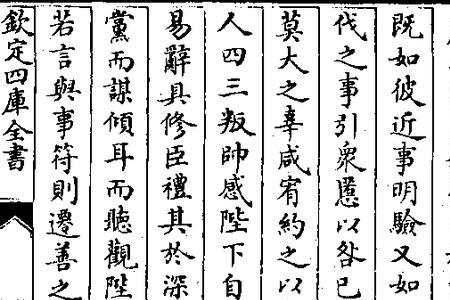 既如彼近事明驗又如
伐之事引衆慝以咎已
莫大之辜咸宥約之以
人四三叛帥感陛下自
易辭具修臣禮其於深
黨而謀傾耳而聽觀陛
若言與事符則遷善之
欽定四庫全書